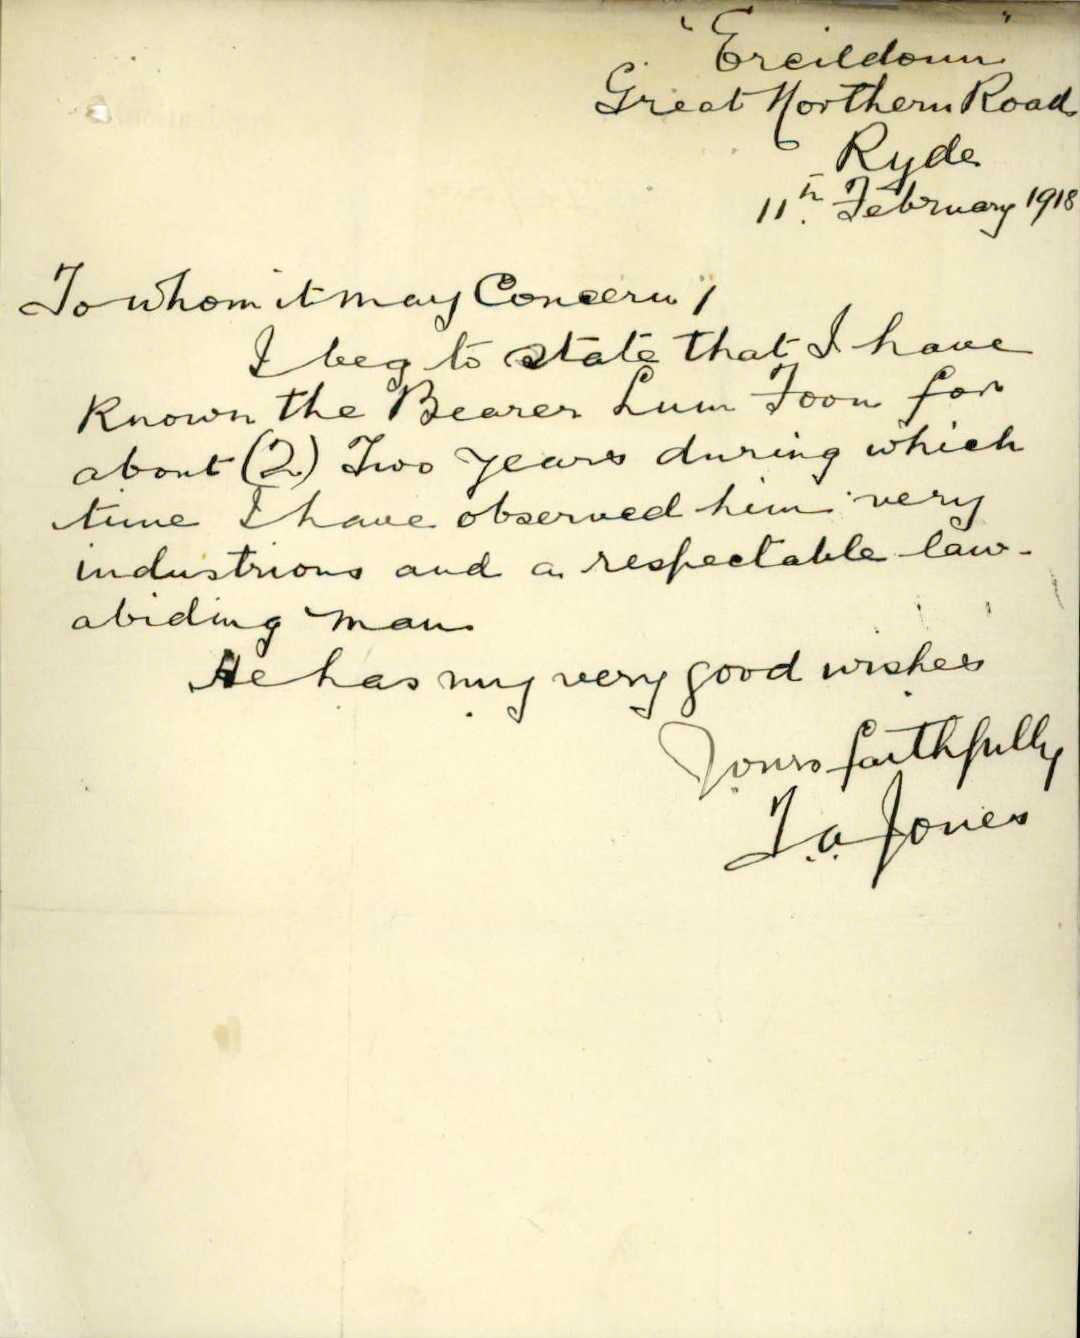 "Ercildoun"
Great Northern Road
Ryde
11th February 1918
To whom it may Concern,
I beg to state that I have
known the Bearer Lum Foon for
about (2) Two years during which
time I have observed him very
industrious and a respectable law-
abiding man.
He has my very good wishes
Yours faithfully
T. A. Jones